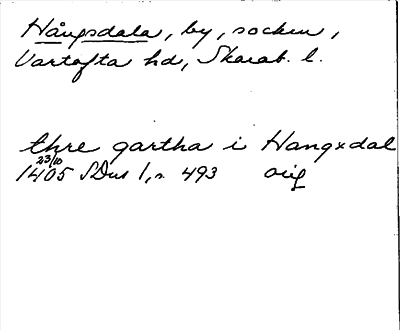 Hångsdala, by, socken,
Vartofta hd, Skarab. l.
thre gartha i Hangxdal
23/10
1405 SDns 1, s. 493 orig